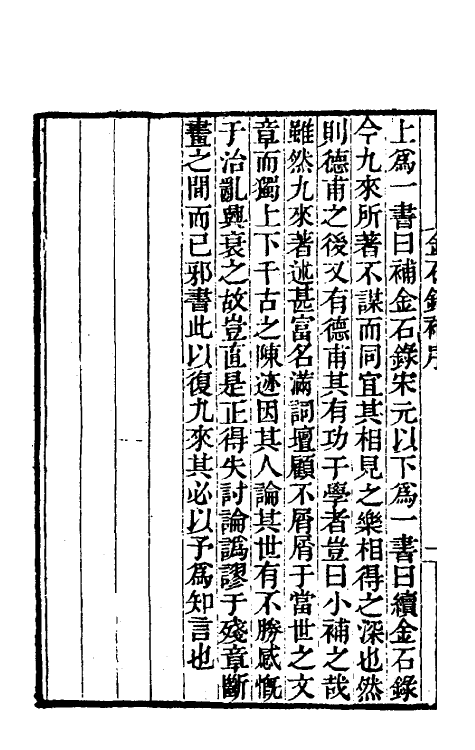 金石錄補序
二
上爲一書曰補金石錄宋元以下爲一書曰續金石錄
今九來所著不謀而同宜其相見之樂相得之深也然
則德甫之後又有德甫其有功于學者豈曰小補之哉
雖然九來著述甚富名滿詞壇顧不屑屑于當世之文
章而獨上下千古之陳迹因其人論其世有不勝感慨
于治亂興衰之故豈直是正得失討論譌謬于殘章斷
畫之間而已邪書此以復九來其必以予爲知言也